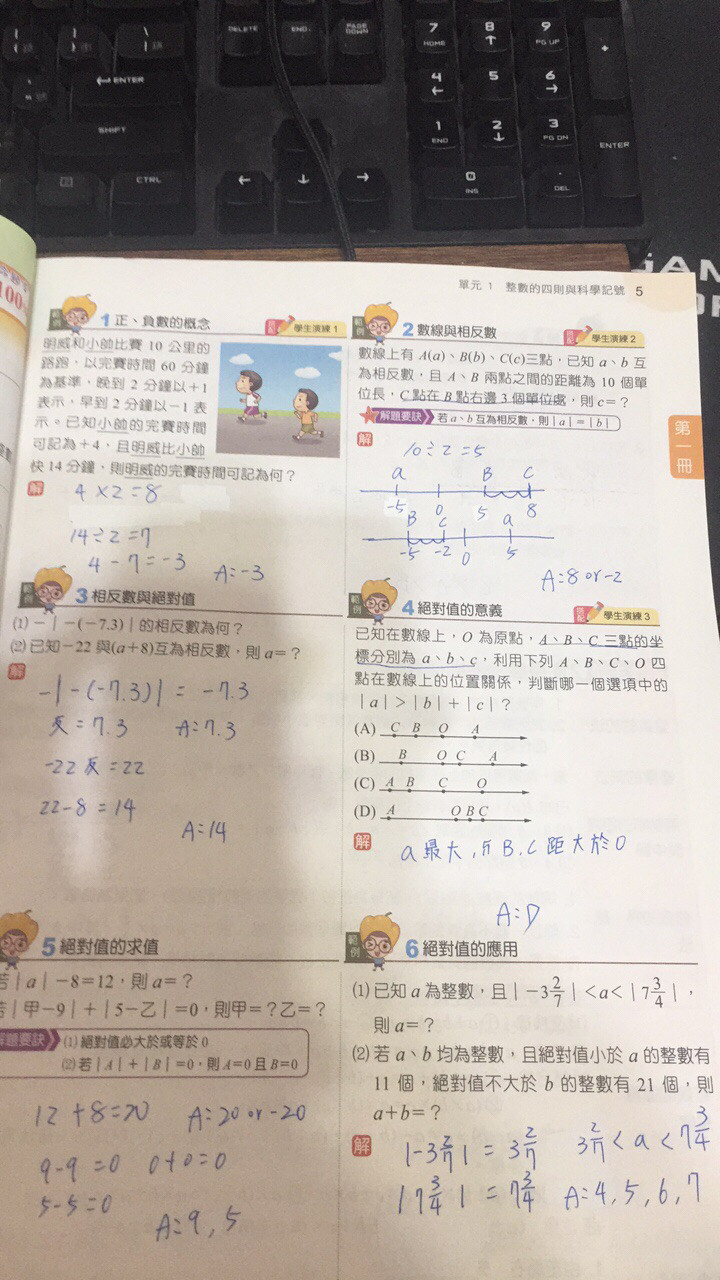 DELETE
END
PAGE DOWN
7 HOME
8
9 PG UP
+
ENTER
4
5
6
SHIFT
1 END
2
3 PG DN
ENTER
CTRL
0 INS
. DEL
單元 1 整數的四則與科學記號 5
第一冊
範例 1 正、負數的概念
搭配 學生演練 1
明威和小帥比賽 10 公里的
路跑,以完賽時間 60 分鐘
為基準,晚到 2 分鐘以+1
表示,早到 2 分鐘以-1 表
示。已知小帥的完賽時間
可記為+4,且明威比小帥
快 14 分鐘,則明威的完賽時間可記為何?
解
4×2=8
14÷2=7
4-7=-3
A:-3
範例 2 數線與相反數
搭配 學生演練 2
數線上有 A(a)、B(b)、C(c)三點,已知 a、b 互
為相反數,且 A、B 兩點之間的距離為 10 個單
位長,C 點在 B 點右邊 3 個單位處,則 c=?
解題要訣 若 a、b 互為相反數,則|a|=|b|
解
10÷2=5
a B C
-5 0 5 8
B C a
-5 -2 0 5
A:8 or -2
範例 3 相反數與絕對值
(1) -|-(-7.3)|的相反數為何?
(2) 已知-22 與(a+8)互為相反數,則 a=?
解
-|-(-7.3)| = -7.3
反=7.3 A:7.3
-22反=22
22-8=14
A:14
範例 4 絕對值的意義
搭配 學生演練 3
已知在數線上,O 為原點,A、B、C 三點的坐
標分別為 a、b、c,利用下列 A、B、C、O 四
點在數線上的位置關係,判斷哪一個選項中的
|a|>|b|+|c|?
(A) C B O A
(B) B O C A
(C) A B C O
(D) A O B C
解
a最大,所B,C距大於0
A:D
5 絕對值的求值
若|a|-8=12,則 a=?
若|甲-9|+|5-乙|=0,則甲=?乙=?
解題要訣 (1) 絕對值必大於或等於 0
(2) 若|A|+|B|=0,則 A=0 且 B=0
12+8=20 A:20 or -20
9-9=0 0+0=0
5-5=0
A:9,5
範例 6 絕對值的應用
(1) 已知 a 為整數,且|-3 2/7|<a<|7 3/4|,
則 a=?
(2) 若 a、b 均為整數,且絕對值小於 a 的整數有
11 個,絕對值不大於 b 的整數有 21 個,則
a+b=?
解
|-3 2/7| = 3 2/7 3 2/7<a<7 3/4
|7 3/4| = 7 3/4 A:4,5,6,7